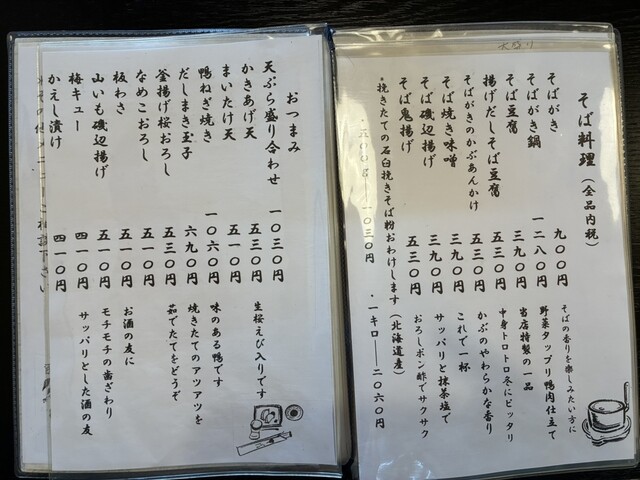 そば料理(全品内税)
そばがき 九〇〇円 そばの香りを楽しみたい方に
そばがき鍋 一二八〇円 野菜タップリ鴨肉仕立て
そば豆腐 三九〇円 当店特製の一品
揚げだしそば豆腐 五三〇円 中身トロトロ冬にピッタリ
そばがきのかぶあんかけ 五三〇円 かぶのやわらかな香り
そば焼き味噌 三九〇円 これで一杯
そば磯辺揚げ 三九〇円 サッパリと抹茶塩で
そば鬼揚げ 五三〇円 おろしポン酢でサクサク
・挽きたての石臼挽きそば粉おわけします(北海道産)
・五〇〇g——一〇三〇円 ・一キロ——二〇六〇円
おつまみ
天ぷら盛り合わせ 一〇三〇円
かきあげ天 五三〇円 生桜えび入りです
まいたけ天 五一〇円
鴨ねぎ焼き 一〇六〇円 味のある鴨です
だしまき玉子 六九〇円 焼きたてのアツアツを
釜揚げ桜おろし 五三〇円 茹でたてをどうぞ
なめこおろし 五一〇円
板わさ 五一〇円 お酒の友に
山いも磯辺揚げ 五一〇円 モチモチの歯ざわり
梅キュー 四一〇円 サッパリとした酒の友
かえし漬け 四一〇円